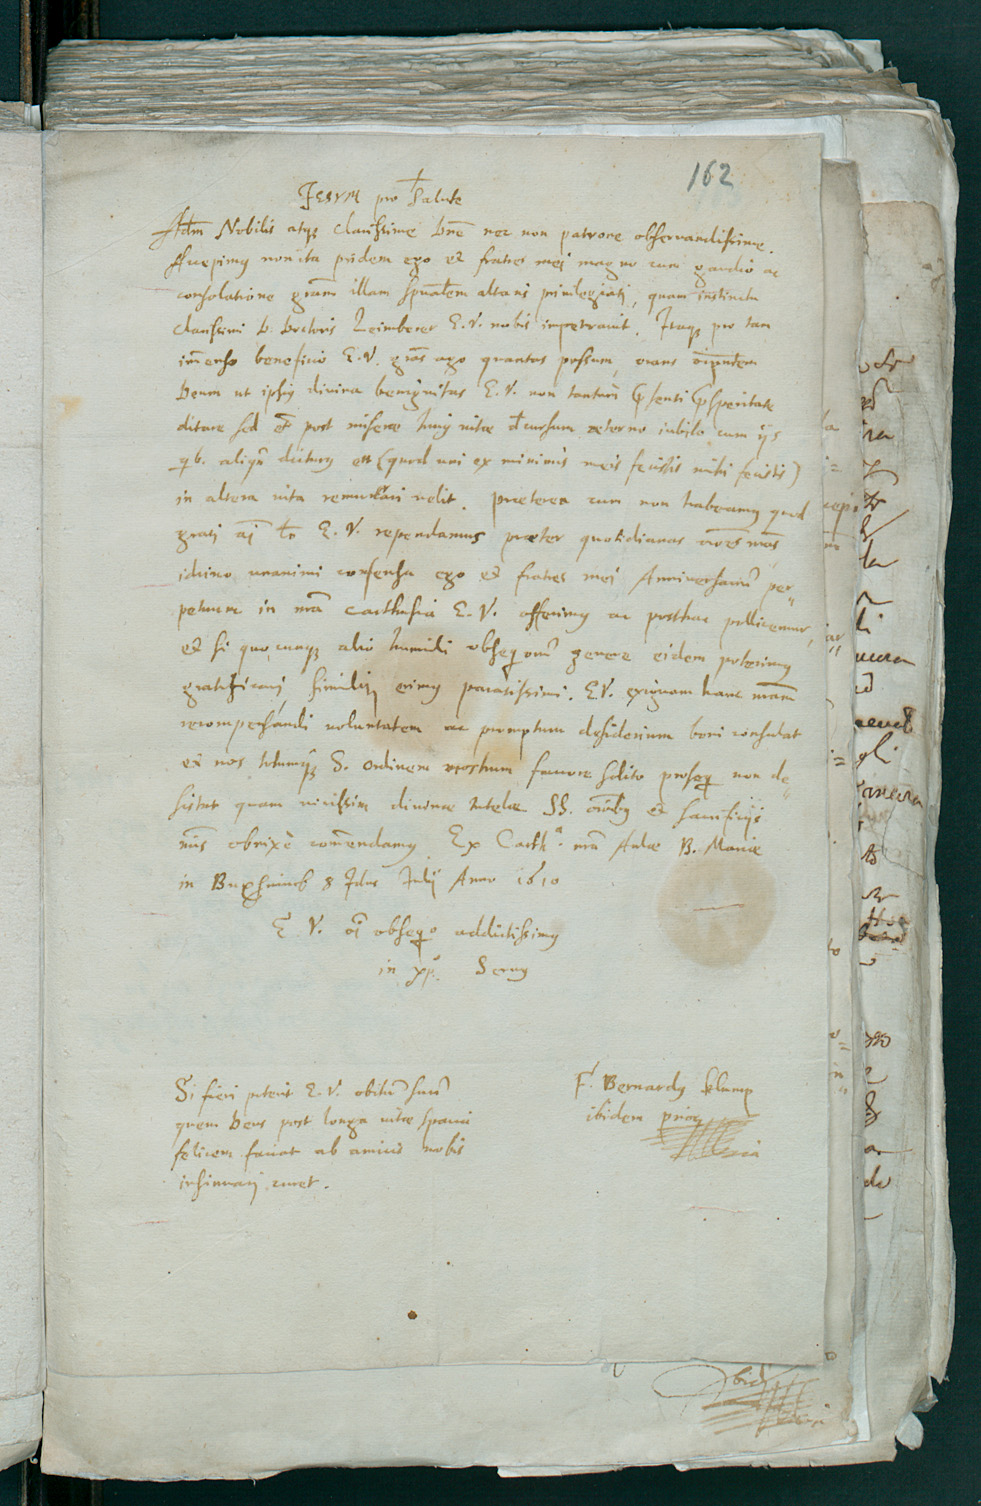 162
Jesum pro Salute
Adm Nobilis atq; clarissime Dne nec non patrone observandissime.
Accepimus non ita pridem ego et fratres mei magno cum gaudio ac
consolatione gram illam spualem altaris privilegiati, quam instinctu
clarissimi D. Doctoris Leimberer E. V. nobis impetravit. Itaq; pro tam
imenso beneficio E. V. gras ago quantas possum, orans oipotem
Deum ut ipsius divina benignitas E. V. non tantum psenti psperitate
ditare sed et post miserae huius vitae decursum aeterno iubilo cum iis
qb. aliqn dicturus est (quod uni ex minimis meis fecistis mihi fecistis)
in altera vita remunerari velit. praeterea cum non habeamus quod
grati ai loco E. V. rependamus praeter quotidianas oroes nras
idcirco unanimi consensu ego et fratres mei Anniversariu per-
petuum in nra Carthusia E. V. offerimus ac posthac pollicemur,
et si quocunq; alio humili obsequioru genere eidem poterimus
gratificari, similiter erimus paratissimi. E. V. exiguam hanc nram
recompensandi voluntatem ac promptum desiderium boni consulat
et nos totumq; S. Ordinem nostrum favore solito proseq non de-
sistat quam vicissim divinae tutelae SS. oroibus et sacrificiis
nris obnixe comendamus. Ex Carth.a nra Aulae B. Mariae
in Buxheimb 8 Idus Julij Anno 1610
E. V. oi obsequio addictissimus
in xpo. Servus
F. Bernardus Klump
ibidem prior
Si fieri poterit E. V. obitu suu
quem Deus post longa vitae spacia
felicem faciat ab amicis nobis
insinuari curet.